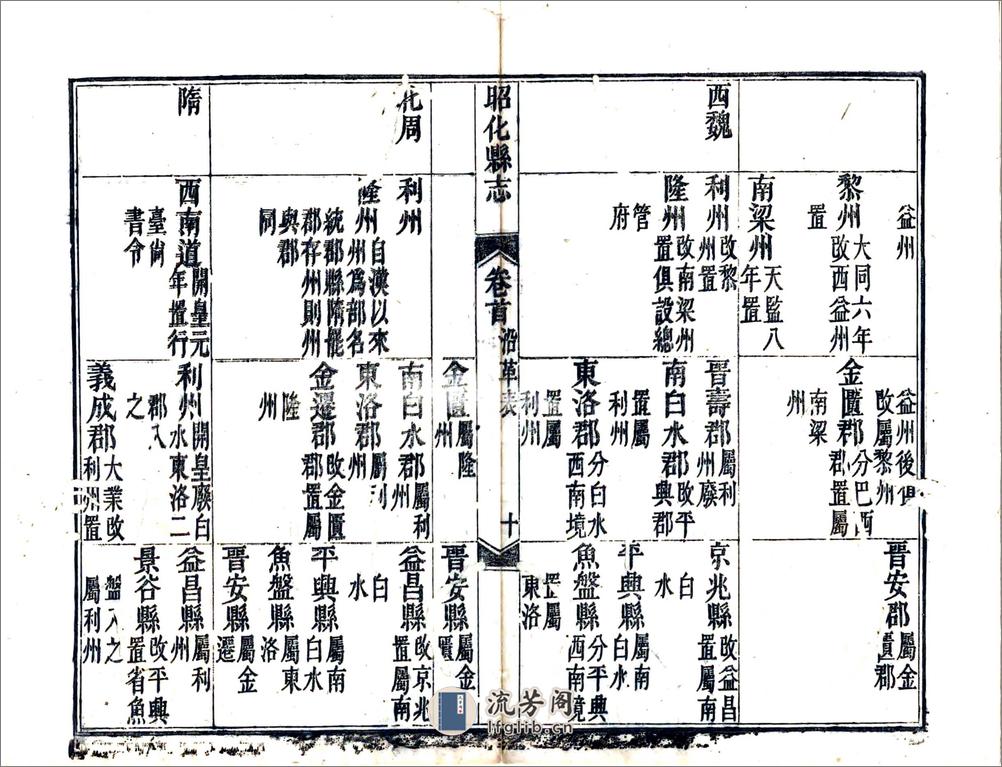 益州
黎州大同六年
改西益州
置
南梁州天監八
年置
益州後俱
改屬黎州
金匱郡分巴西
郡置屬
南梁
州
晉安郡屬金
匱郡
西魏
利州改黎
州置
隆州改南梁州
置俱設總
管
府
晉壽郡屬利
州廢
南白水郡改平
興郡
置屬
利州
東洛郡分白水
西南境
置屬
利州
京兆縣改益昌
置屬南
白
水
平興縣屬南
白水
魚盤縣分平興
西南境
置屬
東洛
昭化縣志
卷首
沿革表
十
金匱屬隆
州
晉安縣屬金
匱
北周
利州
隆州自漢以來
州爲部名
統郡縣隋罷
郡存州則州
與郡
同
南白水郡屬利
州
東洛郡屬利
州
金遷郡改金匱
郡置屬
隆
州
益昌縣改京兆
置屬南
白
水
平興縣屬南
白水
魚盤縣屬東
洛
晉安縣屬金
遷
隋
西南道開皇元
年置行
臺尚
書令
利州開皇廢白
水東洛二
郡入
之
義成郡大業改
利州置
益昌縣屬利
州
景谷縣改平興
置省魚
盤入之
屬利州
流芳阁
lfglib.cn